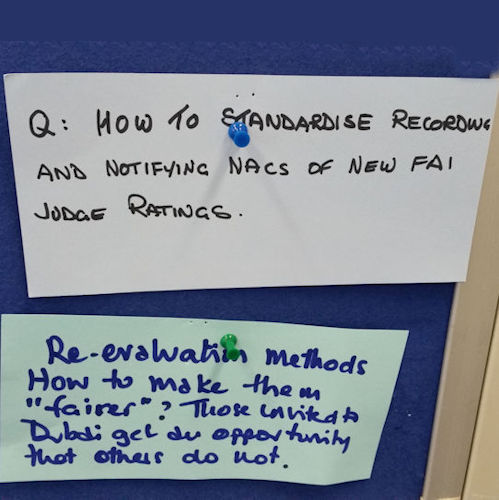 Q: HOW TO STANDARDISE RECORDING
AND NOTIFYING NACS OF NEW FAI
JUDGE RATINGS.
Re-evaluation methods
How to make them
"fairer"? Those invited to
Dubai get an opportunity
that others do not.